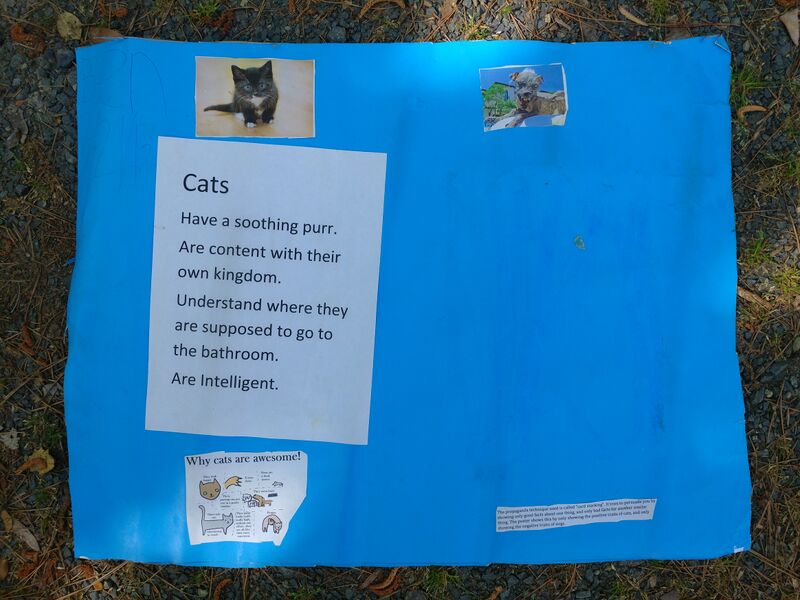 Cats
Have a soothing purr.
Are content with their
own kingdom.
Understand where they
are supposed to go to
the bathroom.
Are Intelligent.
Why cats are awesome!
The propaganda technique used is called "card stacking". It tries to persuade you by
showing only good facts about one thing, and only bad facts for another similar
thing. The poster shows this by only showing the positive traits of cats, and only
showing the negative traits of dogs.